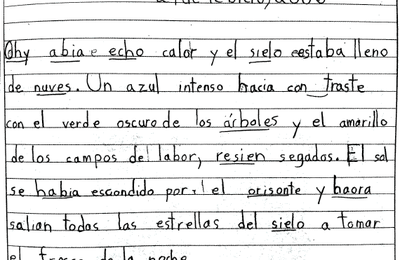 Ohy abia e echo calor y el sielo eestaba lleno
de nuves. Un azul intenso hacia con traste
con el verde oscuro de los árboles y el amarillo
de los campos del labor, resien segados. El sol
se habia escondido por el orisonte y haora
salian todas las estrellas del sielo a tomar
el de la noche